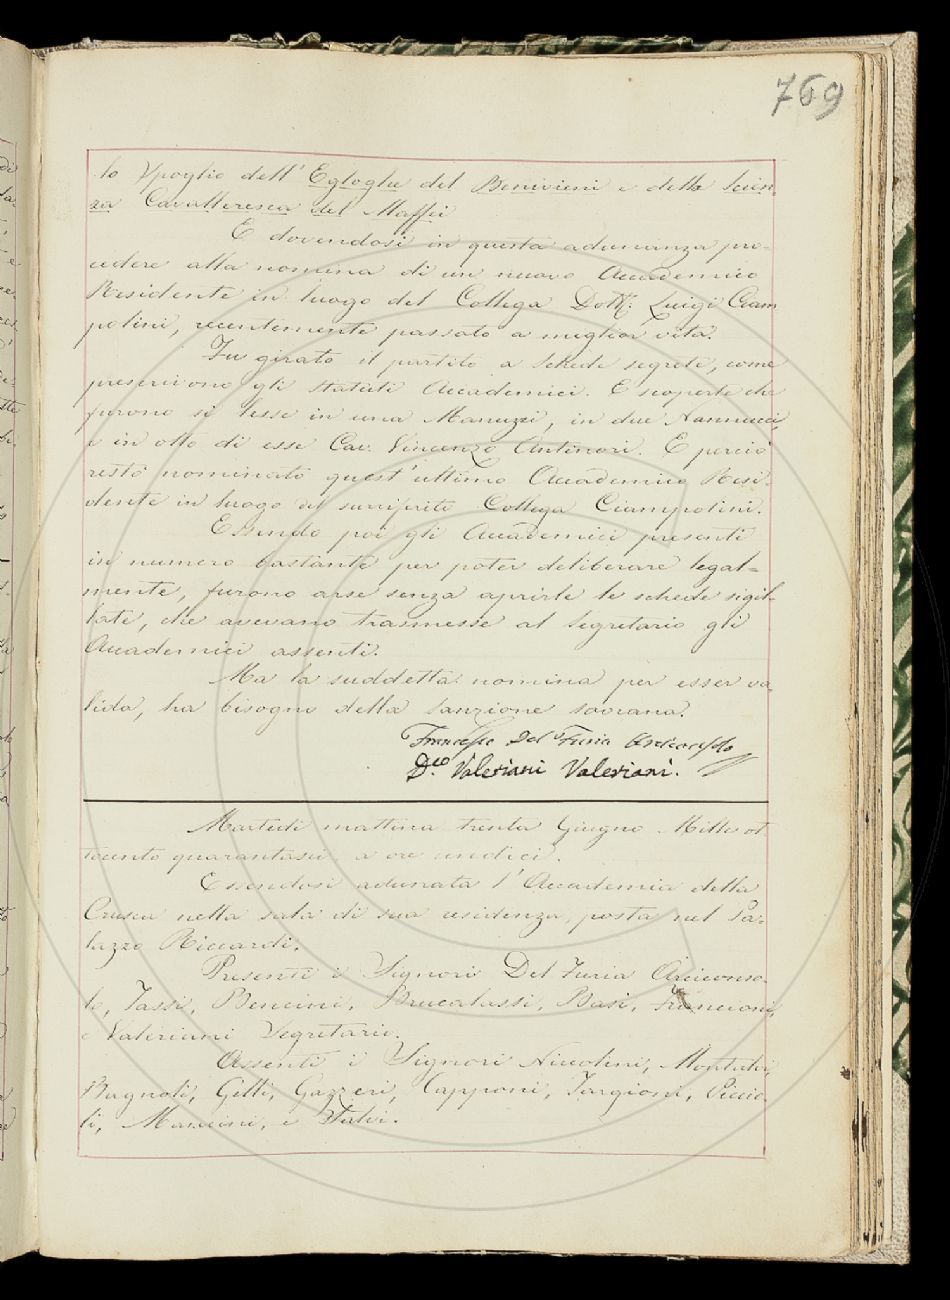 769
lo Spoglio dell' Egloghe del Benivieni e della Scien,
za Cavalleresca del Maffei
E dovendosi in questa adunanza pro-
cedere alla nomina di un nuovo Accademico
Residente in luogo del Collega Dott: Luigi Ciam
polini, recentemente passato a miglior vita.
Fu girato il partito a schede segrete, come
prescrivono gli statuti Accademici. E scoperte che
furono si lesse in una Manuzzi, in due Nannucci,
e in otto di esse Cav. Vincenzo Antinori. E perciò
restò nominato quest' ultimo Accademico Resi-
dente in luogo del surriferito Collega Ciampolini.
Essendo poi gli Accademici presenti
in numero bastante per poter deliberare legal=
mente, furono arse senza aprirle le schede sigil-
late, che avevano trasmesse al Segretario gli
Accademici assenti.
Ma la suddetta nomina per esser va
lida, ha bisogno della Sanzione sovrana.
Francesco Del Furia Arciconsolo
D.co Valeriani Valeriani.
Martedì mattina trenta Giugno Mille ot
tocento quarantasei a ore undici.
Essendosi adunata l' Accademia della
Crusca nella sala di sua residenza, posta nel Pa-
lazzo Riccardi.
Presenti i Signori Del Furia Arciconso-
lo, Tassi, Bencini, Brucalassi, Basi, Francioni,
e Valeriani Segretario.
Assenti i Signori Niccolini, Montalvi,
Bagnoli, Gelli, Gazzeri, Capponi, Targioni, Piccio
li, Mancini, e Salvi.